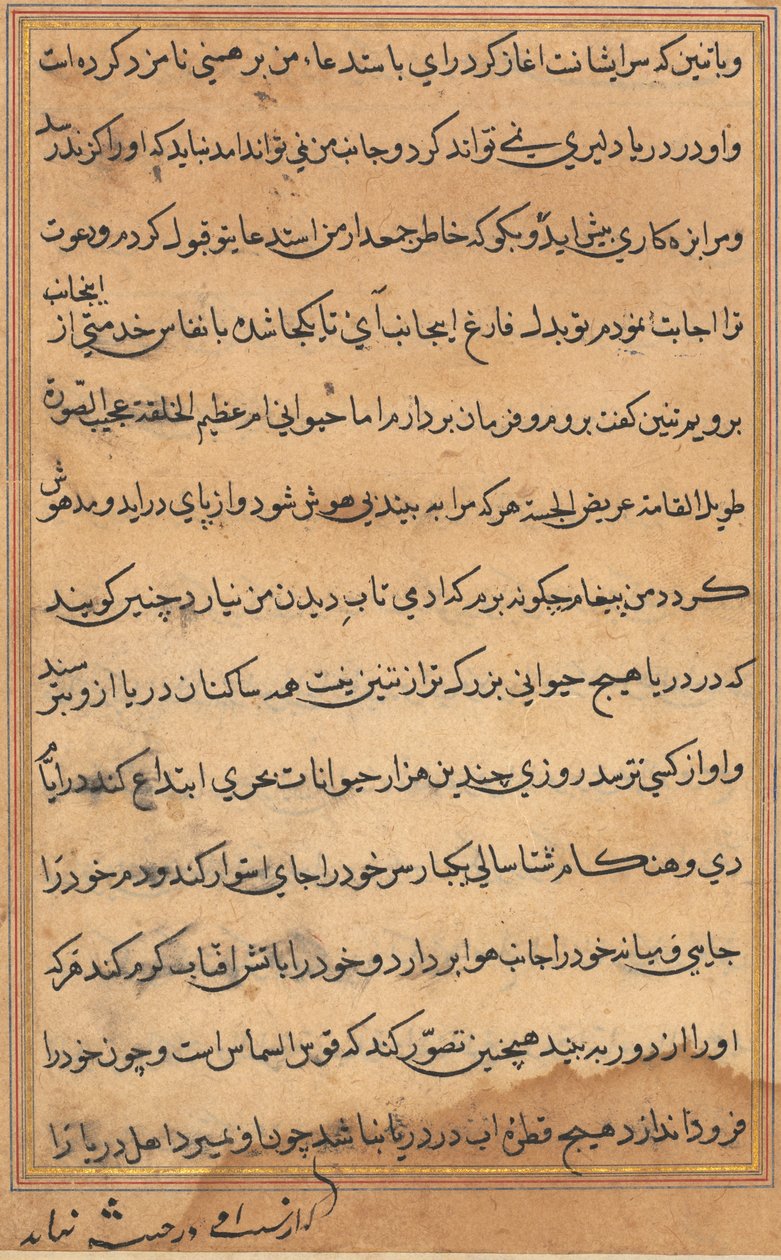 و باتنین که سر ایشانست اغاز کرد رای باستدعاء من برهمنی نامزد کرده است
واو در دریا دلیری نمے تواند کرد و جانب من نمی تواند امد نباید که او را کزند رسد
و مرا بزه کاری پیش اید و بکو که خاطر جمعدار من استدعایتو قبول کردم و دعوت
ترا اجابت نمودم تو بدل فارغ اینجانب آی تا یکجا شده بانفاس خدمتی از اینجانب
برویم تنین کفت بروم و فرمان بردارم اما حیوانی ام عظیم الخلقة عجیب الصّورة
طویل القامة عریض الجسة هر که مرا به بیند بی هوش شود و از پای دراید و مدهوش
کردد من پیغام چکونه برم که ادمی تابِ دیدن من نیارد چنین کویند
که در دریا هیچ حیوانی بزرک تر از تنین نیست همه ساکنان دریا ازو بترسند
واو از کسی نترسد روزی چندین هزار حیوانات بحری ابتداع کند در ایّام
دی و هنکام شتا سالی یکبار سر خود را جای استوار کند و دم خود را
جایی و میانه خود را جانب هوا بردارد و خود را باتش افتاب کرم کند هر که
او را از دور به بیند همچنین تصوّر کند که قوس السماس است و چون خود را
فرود اندازد هیچ قطره اب در دریا بنا شد چون او بمیرد اهل دریا را